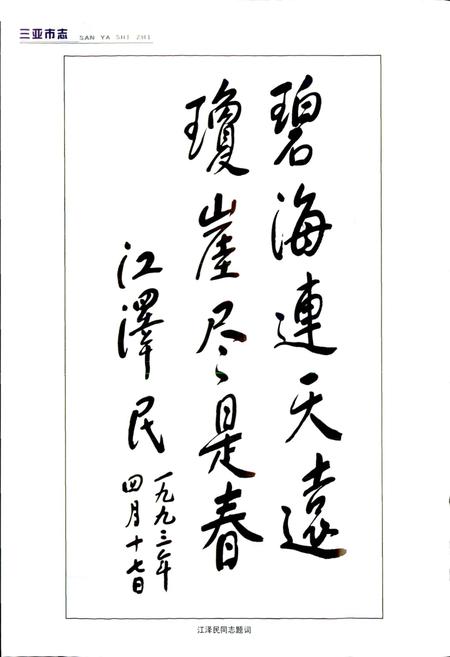 三亚市志 SAN YA SHI ZHI
碧海連天遠
瓊崖尽是春
江澤民
一九九三年
四月十七日
江泽民同志题词